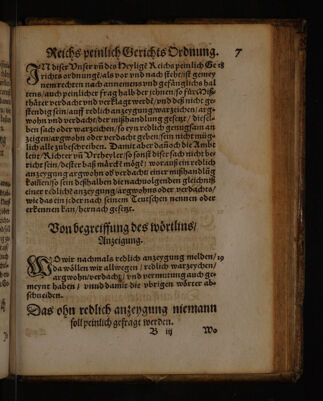 Reichs peinlich Gerichts Ordnung. 7
IN diser Unser vñ des Heylige Reichs peinlich Ge
richts ordnung/als vor vnd nach steht/ist gemey
nem rechten nach annemens vnd gefencklichs hal
tens/auch peinlicher frag halb der jhenen/so für Miß
thäter verdacht vnd verklagt werdē/vnd deß nicht ge
stendig sein/auff redlich anzeygung/warzeichen/arg
wohn vnd verdacht/der mißhandlung gesetzt/diesel
ben sach oder warzeichen/so eyn redlich genugsam an
zeigen/argwohn oder verdacht geben/sein nit müglich
all zubeschreiben. Damit aber dañocht die Ambt
leut/Richter vñ Vrtheyler/so sonst diser sach nicht be
richt sein/dester baß märckē mögē/worauß ein redlich
anzeygung argwohn oď verdacht einer mißhandlūg
kommen/so sein deßhalben die nachuolgenden gleichnüß
einer redlichē anzeygung/argwohns oder verdachts/
wie das ein jeder nach seinem Teutschen nennen oder
erkennen kan/hernach gesetzt.
Von begreiffung des wörtlins/
Anzeigung.
WO wir nachmals redlich anzeygung melden/
da wöllen wir allwegen/redlich warzeychen/
argwohn/verdacht/vnd vermutung auch ge
meynt haben/vnnd damit die übrigen wörter ab-
schneiden.
Das ohn redlich anzeygung niemann
soll peinlich gefragt werden.
B iij Wo